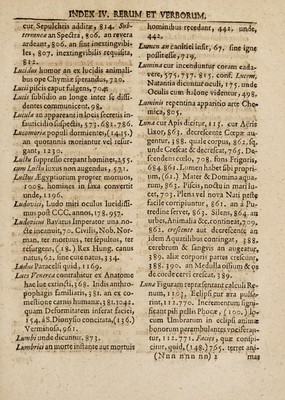 INDEX IV. RERUM ET VERBORUM.
cur, Sepulchris additæ, 814. Sub-
terranea an Spectra, 806. an revera
ardeant, 806. an sint inextinguibi-
les, 807. inextinguibilis requisita,
812.
Lucidus humor an ex lucidis animali-
bus ope Chymiæ sperandus, 720.
Lucii piscis caput fulgens, 704.
Luci subsidio an longe inter se dissi-
dentes communicent, 98.
Lucula an appareant in locis secretis in-
sustuicidiis suspectis, 573. 681. 786
Lucomoria populi dormientes, (1415.)
an quotannis moriantur vel resur-
gant, 1230.
Luctu suppresso crepant homines, 255.
cum Luctu luxus non augendus, 571.
Luctus Ægyptiorum propter mortuos,
1008. homines in saxa convertit
unde, 1196.
Ludovici, Ludo miti oculus lucidissi-
mus post CCC. annos, 178. 957.
Ludovicus Bavarus Imperator una no-
cte incanuit, 70. Civilis, Nob. Nor-
man. ter mortuus, ter sepultus, ter
resurgens, (18.) Rex Hung. canus
natus, 62. sine cute natus, 334.
Ludus Paracelsi quid, 1169.
Lues Venerea contrahatur ex Anatome
hac lue extincti, 168. Indis anthro-
pophagis familiaris, 381. an ex co-
mestione carnis humanæ, 381. 1042.
quam Deformitatem inferat faciei,
154. à S. Dionysio concitata, (136.)
Verminosa, 961.
Lumbi unde dicuntur, 873.
Lumbricus an morte instante aut mortuis
hominibus recedant, 442. unde,
442.
Lumen an exilitiei insit, 67. sine igne
possit esse, 719.
Lumina cur incenduntur coram cada-
vere, 575. 737. 815. conf. Lucerna,
Natantis dicuntur oculi, 175. unde
Oculis cum halone videntur, 498.
Luminis repentina apparitio arte Che-
mica, 805.
Luna cur Apis dicitur, 115. cur Aëris
luxor, 863. decrescente Cæpæ au-
gentur, 158. quale corpus, 862. &
unde Crescat & decrescat, 765. De-
scendens cœlo, 708. fons Frigoris,
664. 861. Lumen habet sibi propri-
um, (62.) Mater & Domina aqua-
rum, 861. Pisces, nocti in mari lu-
cet, 703. Plena vel nova Nati peste
facile corripiuntur, 861. an a Pu-
tredine servet, 863. Silens, 864. an
urbes, Animalia &c. contineat, 709.
862. crescente aut decrescente an
iidem Aquilibus contingat, 388.
cerebrum & sanguis an augeatur,
389. aliæ corporis partes crescunt,
388. 390. an Medulla ossium & os
de corde cervi crescat, 389.
Luna Figuram repræsentant calculi Re-
num, 1103. Eclipsi cur æra pulsa-
rint, 112. 770. Incrementum signi-
ficant pili pellis Phocæ, (100.) lo-
cum Umbrarum in eclipsi animæ
bonorum parambulantes vociferap-
tur, 112. 771. Facies, quæ conspi-
citur, quid, (148.) 765. terret ani-
(Nnn nnn nn) 2 ma-